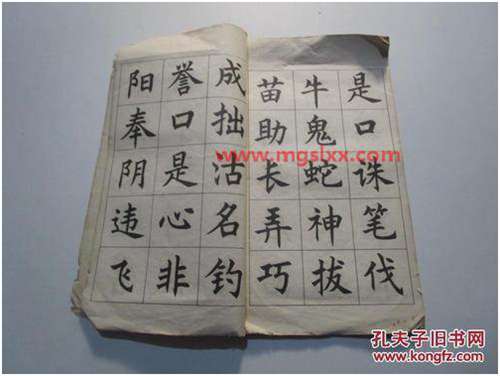 是口诛笔伐
牛鬼蛇神拔
苗助长弄巧
成拙沽名钓
誉口是心非
阳奉阴违飞
www.mgsbxx.com
孔夫子旧书网
www.kongfz.com